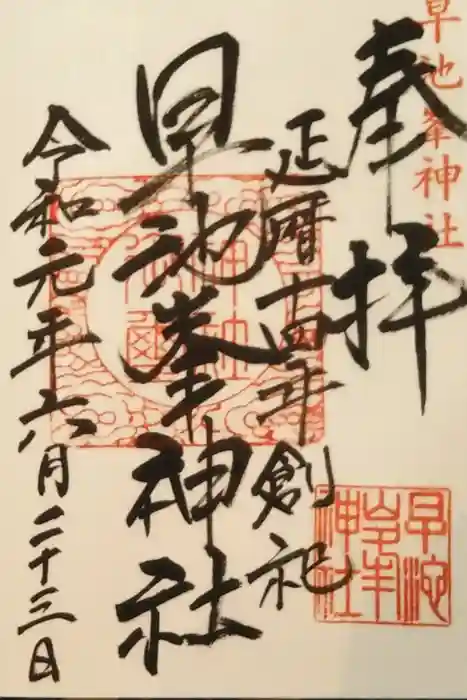 早池峯神社
奉拝
延暦十四年創祀
早池峯神社
令和元年六月二十三日
早池峯神社